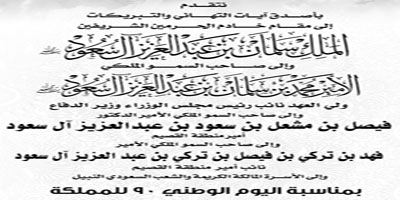 نتقدم
بأصدق آيات التهاني والتبريكات
إلى مقام خادم الحرمين الشريفين
الملك سلمان بن عبد العزيز آل سعود
وإلى صاحب السمو الملكي
الأمير محمد بن سلمان بن عبد العزيز آل سعود
ولي العهد نائب رئيس مجلس الوزراء وزير الدفاع
وإلى صاحب السمو الملكي الأمير الدكتور
فيصل بن مشعل بن سعود بن عبد العزيز آل سعود
أمير منطقة القصيم
وإلى صاحب السمو الملكي الأمير
فهد بن تركي بن فيصل بن تركي بن عبد العزيز آل سعود
نائب أمير منطقة القصيم
وإلى الأسرة المالكة الكريمة والشعب السعودي النبيل
بمناسبة اليوم الوطني ٩٠ للمملكة